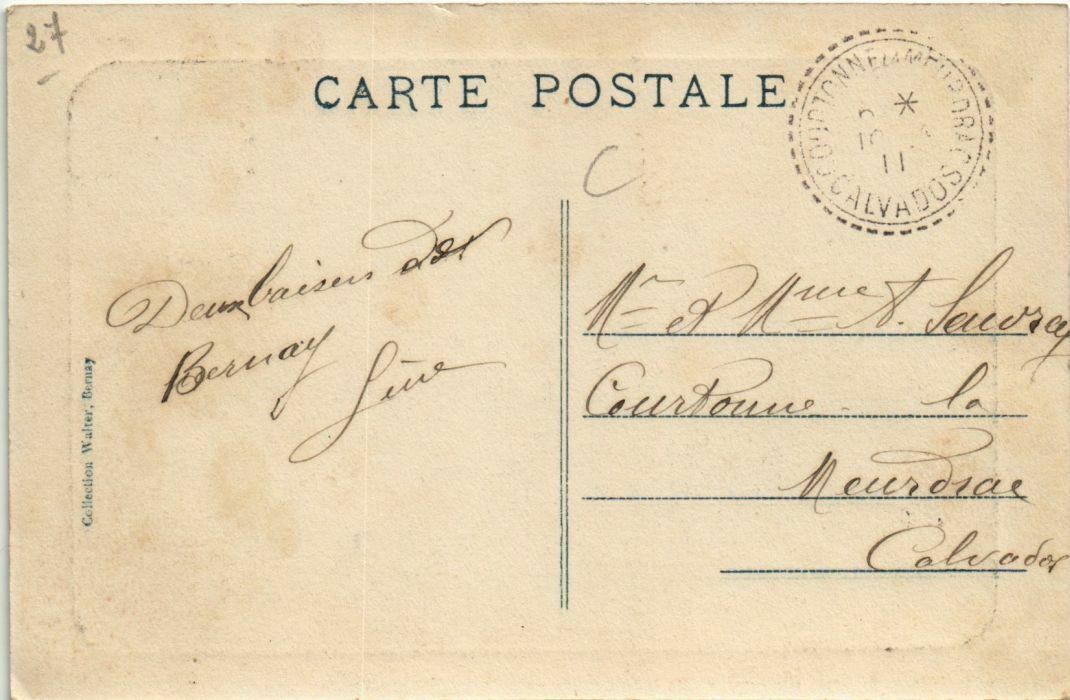 27
CARTE POSTALE
COURTONNE LA MEURDRAC
*
11
CALVADOS
C
Deux baisers de
Bernay
Collection Walter, Bernay
Mr et Mme A.
Courtonne la
Meurdrac
Calvados